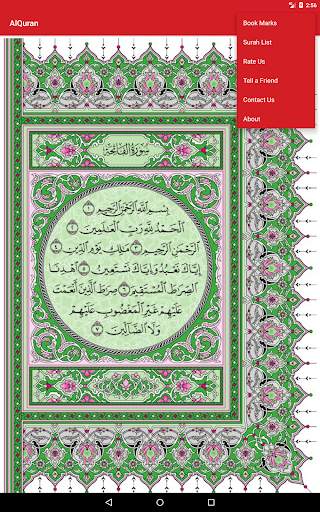 2:56
AlQuran
Book Marks
Surah List
Rate Us
Tell a Friend
Contact Us
About
سورة الفاتحة
بسم الله الرحمن الرحيم ١
الحمد لله رب العلمين ٢
الرحمن الرحيم ٣ ملك يوم الدين ٤
إياك نعبد وإياك نستعين ٥ اهدنا
الصراط المستقيم ٦ صراط الذين أنعمت
عليهم غير المغضوب عليهم
ولا الضالين ٧